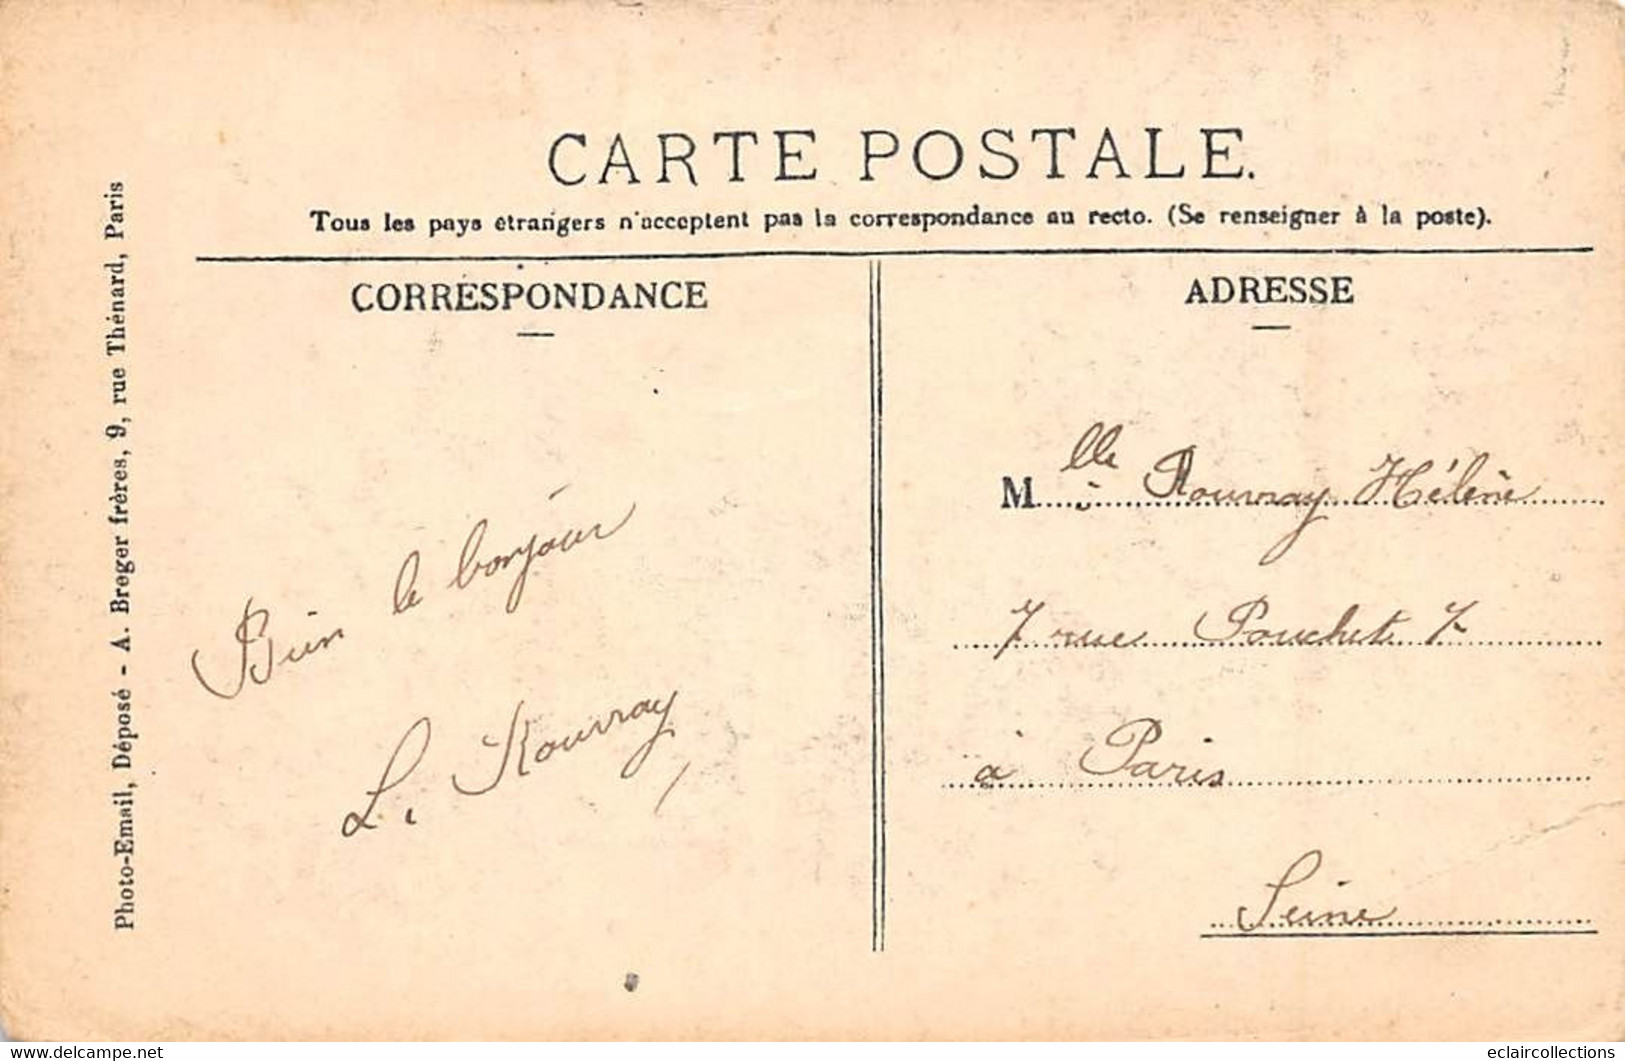 CARTE POSTALE.
Tous les pays étrangers n'acceptent pas la correspondance au recto. (Se renseigner à la poste).
Photo-Email, Déposé - A. Breger frères, 9, rue Thénard, Paris
CORRESPONDANCE
Bien le bonjour
L. Rouvray
ADRESSE
Mlle Rouvray Hélène
7 rue Pouchet 7
à Paris
Seine
www.delcampe.net
eclaircollections